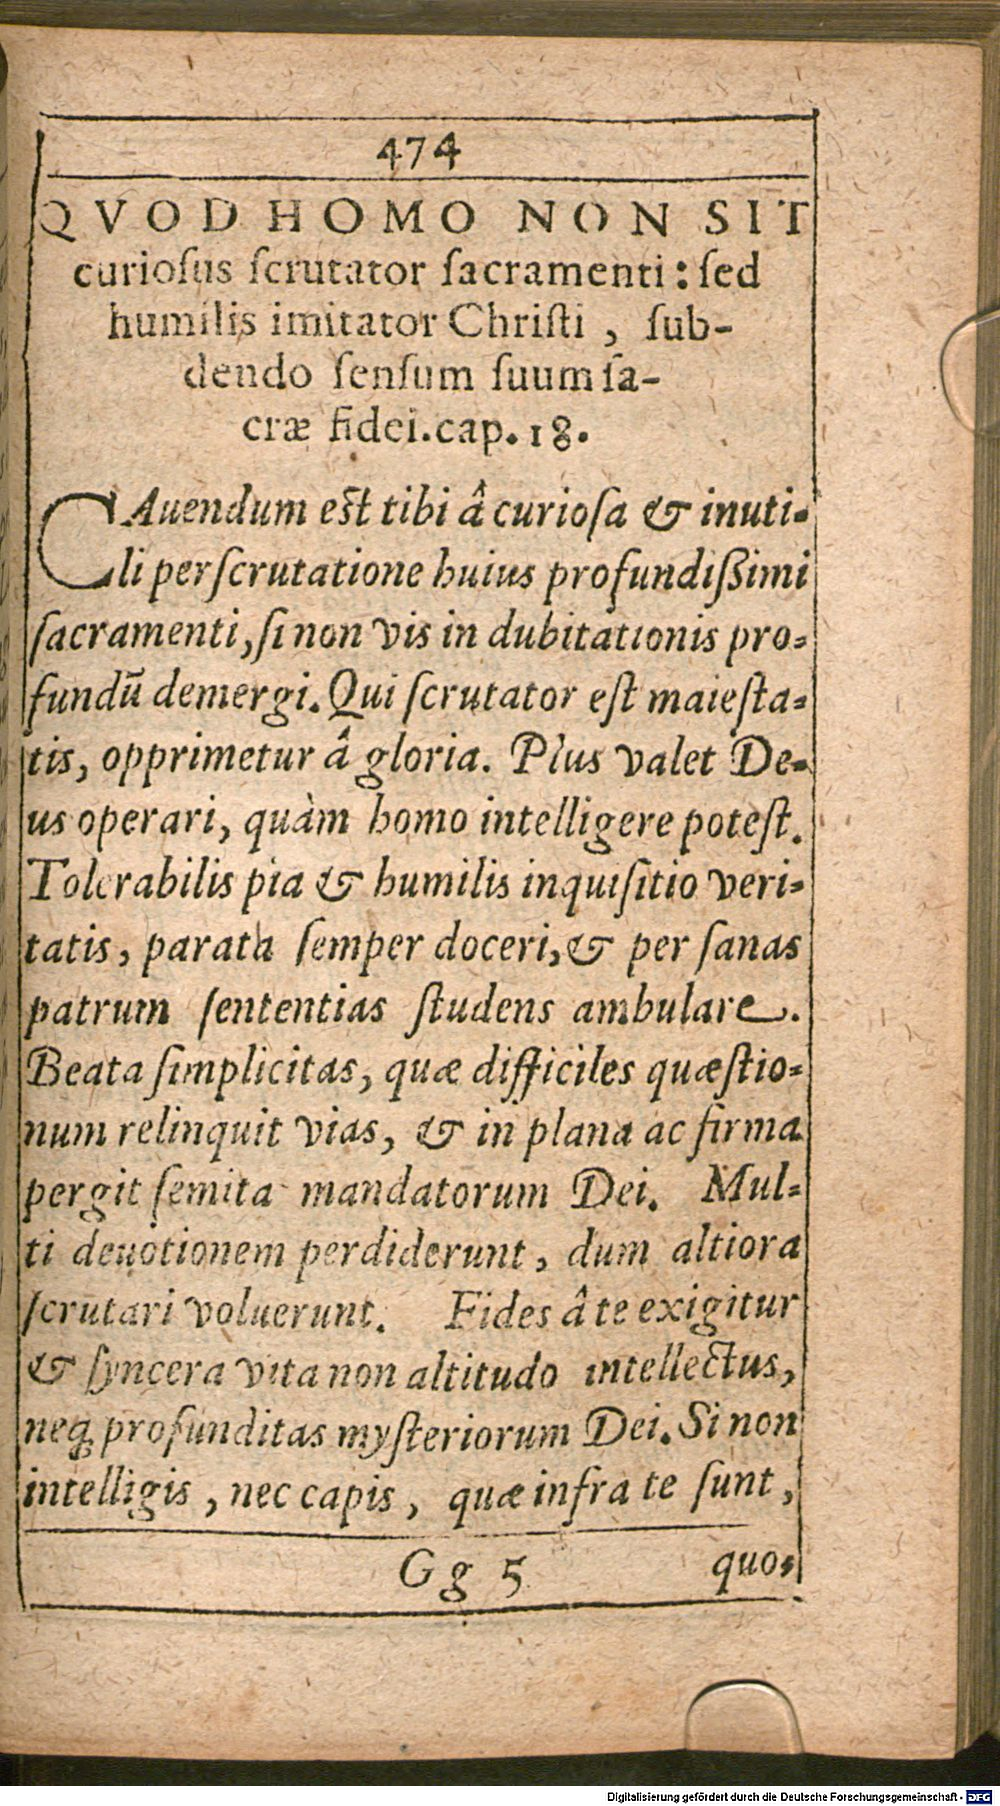 474
QVOD HOMO NON SIT
curioſus ſcrutator ſacramenti: ſed
humilis imitator Chriſti, ſub-
dendo ſenſum ſuum ſa-
cræ fidei. cap. 18.
CAuendum eſt tibi â curioſa & inuti-
li perſcrutatione huius profundiſsimi
ſacramenti, ſi non vis in dubitationis pro-
fundū demergi. Qui ſcrutator eſt maieſta-
tis, opprimetur â gloria. Plus valet De-
us operari, quàm homo intelligere poteſt.
Tolerabilis pia & humilis inquiſitio veri-
tatis, parata ſemper doceri, & per ſanas
patrum ſententias ſtudens ambulare.
Beata ſimplicitas, quæ difficiles quæſtio-
num relinquit vias, & in plana ac firma
pergit ſemita mandatorum Dei. Mul-
ti deuotionem perdiderunt, dum altiora
ſcrutari voluerunt. Fides â te exigitur
& ſyncera vita non altitudo intellectus,
neq; profunditas myſteriorum Dei. Si non
intelligis, nec capis, quæ infra te ſunt,
Gg 5 quo-
Digitalisierung gefördert durch die Deutsche Forschungsgemeinschaft - DFG